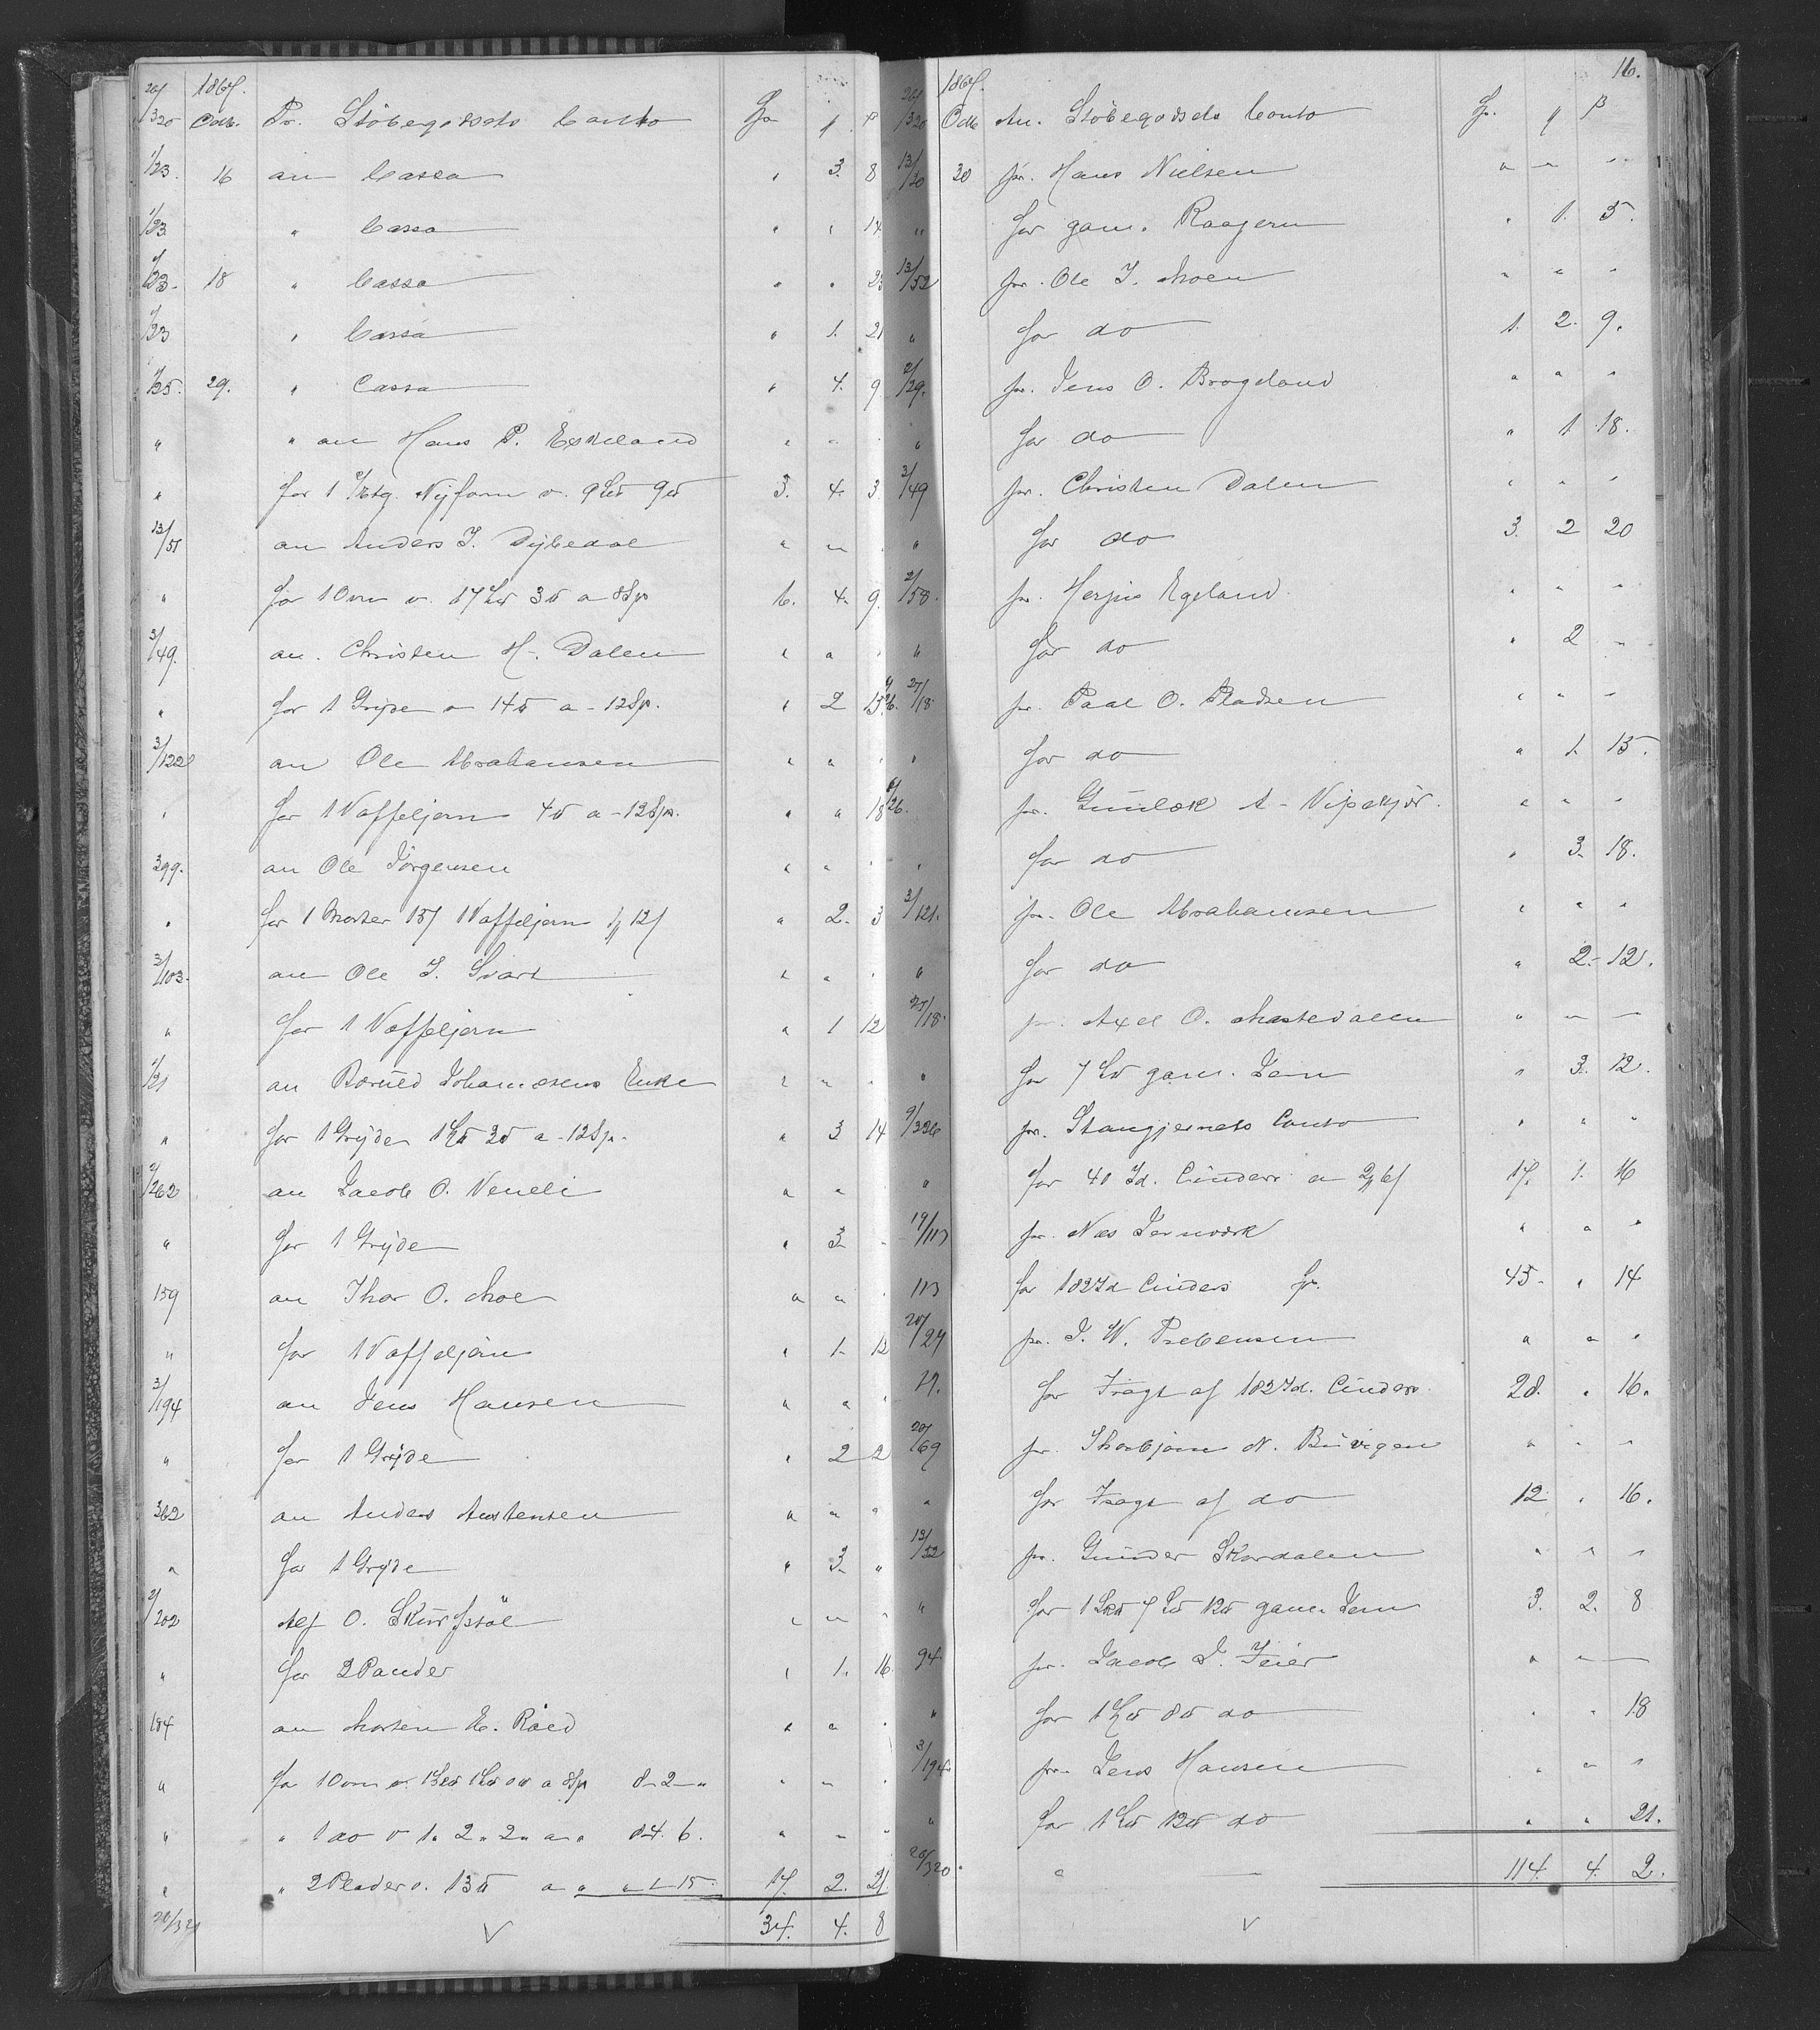 20/320 1867. Octbr. Pr. Støbegodsets Conto Sp. ƒ ß
1/23. 16 an Cassa " 3. 8
1/23 " Cassa " " 14
1/23. 18 " Cassa " " 23
1/23 " Cassa " 1. 21
1/25. 29. " Cassa " 4. 9
" " an Hans P. Eskeland " " "
" for 1 Nyform v. 9 L℔ 9℔ 3. 4. 3
13/51 an Anders J. Dybedal " " "
" for 1 Ovn v. 17 L℔ 3℔ a 8 Sp 6. 4. 9.
3/49. an. Christen H. Dalen " " "
" for 1 Gryde v 14℔ a - 12 Sp. " 2 15
3/122 an Ole Abrahamsen " " "
" for 1 Vaffeljern 4℔ a - 12 Sp. " " 18
399. an Ole Jörgensen " " "
" for 1 Morter 15ß 1 Vaffeljern 12ß " 2. 3
3/103. an Ole J. Svart " " "
" for 1 Vaffeljern " 1 12
1/31 an Baruld Johannesens Enke " " "
" for 1 Gryde 1 L℔ 3℔ a - 12 Sp. " 3 14
2/262 an Jacob O. Veneli " " "
" for 1 Gryde " 3 "
159 an Thor O. Moe " " "
" for 1 Vaffeljern " 1. 12
3/194 an Jens Hansen " " "
" for 1 Gryde " 2 2
362 an Anders Austensen " " "
" for 1 Gryde " 3 "
2/202 Alf O. Skurfstöl " " "
" for 2 Pander " 1. 16
184 an Morten E. Röed " " "
" for 1 Ovn v. 1 Sk℔ 1 L℔ a 8 Sp 8 - 2 - " " " "
" " 1 do v 1 " 2 " 2 " a " " 8 4. 6. " " "
" " 2 Plader v. 13℔ a " " " 1 - 15 17. 2. 21
20/321 34. 4. 8
16.
20/320 1867. Octb An. Støbegodsets Conto Sp. ƒ ß
13/20 30 pr. Hans Nielsen " " "
" for gam. Raajern " 1. 5.
13/52 pr. Ole J. Moen " " "
" for do 1. 2. 9.
2/29. pr. Jens O. Brogeland " " "
" for do " 1. 18.
3/49 pr. Christen Dalen " " "
" for do 3. 2 20
2/58. pr. Herjus Egeland " " "
" for do " 2 "
27/18 pr. Paal O. Pladsen " " "
" for do " 1. 15.
6/26. pr. Gunlæk A. Vipekjær. " " "
" for do " 3. 18.
3/121. pr. Ole Abrahamsen " " "
" for do " 2. 12.
27/18. pr. Axel O. Mastedalen " " "
" for 7 L℔ gam. Jern " 3. 12.
9/336 pr. Stangjernets Conto " " "
" for 40 Td. Cinders a 2 6ß 17. 1. 16
19/117 pr. Næs Jernværk " " "
117 for 182 Td Cinders Sp. 45. " 14
20/27 pr. J. W. Prebensen " " "
27. for Fragt af 182 Td. Cinders. 28. " 16.
20/69 pr. Thorbjørn N. Buvigen " " "
" for Fragt af do 12 " 16.
13/52 pr. Gunder Skordalen " " "
" for 1 Sk℔ 7 L℔ 12℔ gam. Jern 3. 2. 8
94 pr. Jacob D. Feier " "
" for 1 L℔ 8℔ do " " 18
3/194 pr. Jens Hansen " " "
" for 1 L℔ 12℔ do " " 21.
20/320. " 114. 4. 2.